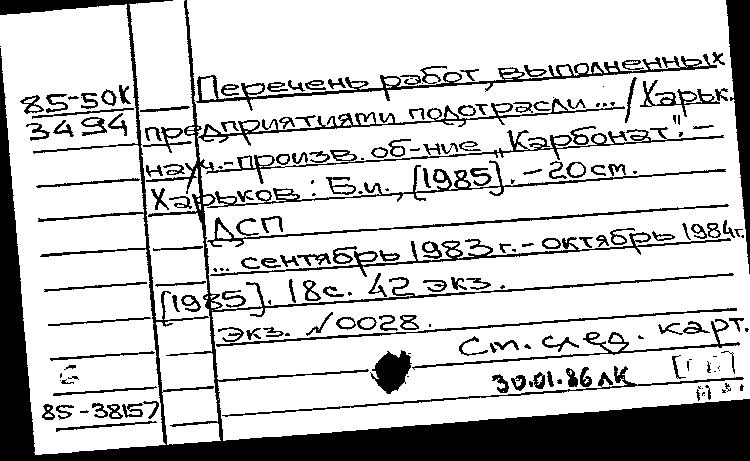 85-50К
3494
Перечень работ, выполненных
предприятиями подотрасли... / Харьк.
науч.-произв. об-ние „Карбонат". -
Харьков: Б.и., [1985]. - 20 см.
ДСП
... сентябрь 1983 г. - октябрь 1984 г.
[1985]. 18 с. 42 экз.
экз. №0028.
См. след. карт.
6
30.01.86 ЛК
85-38157